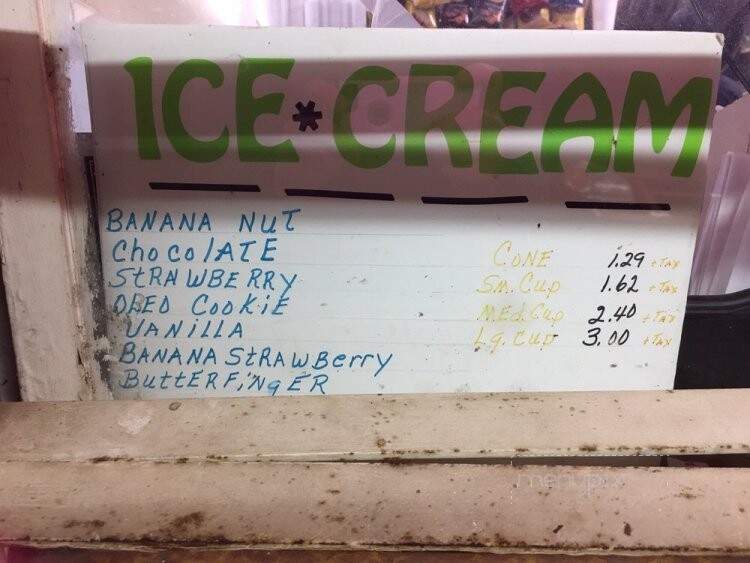 ICE*CREAM
BANANA NUT
ChocolATE
StRAWBERRY
OREO CooKiE
VANillA
BANANA StRAWBerry
ButtERFiNgER
CONE 1.29 +TAX
SM. Cup 1.62 +TAX
MEd. Cup 2.40 +TAX
Lg. Cup 3.00 +TAX
menupix